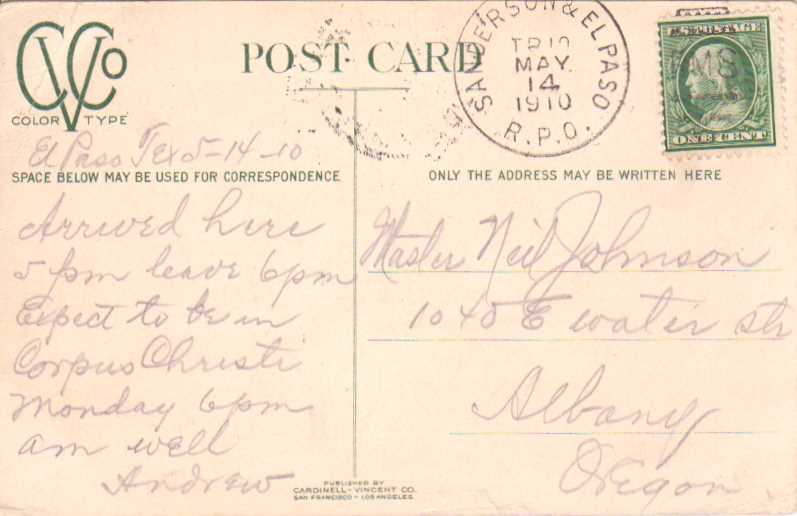 CVCo
COLOR TYPE
POST CARD
SANDERSON & EL PASO
TR 10
MAY
14
1910
R.P.O.
RMS
U.S. POSTAGE
ONE CENT
El Paso Tex 5-14-10
SPACE BELOW MAY BE USED FOR CORRESPONDENCE
Arrived here
5 pm leave 6pm
Expect to be in
Corpus Christi
Monday 6pm
am well
Andrew
ONLY THE ADDRESS MAY BE WRITTEN HERE
Master Neil Johnson
1040 E water str
Albany
Oregon
PUBLISHED BY
CARDINELL-VINCENT CO.
SAN FRANCISCO - LOS ANGELES